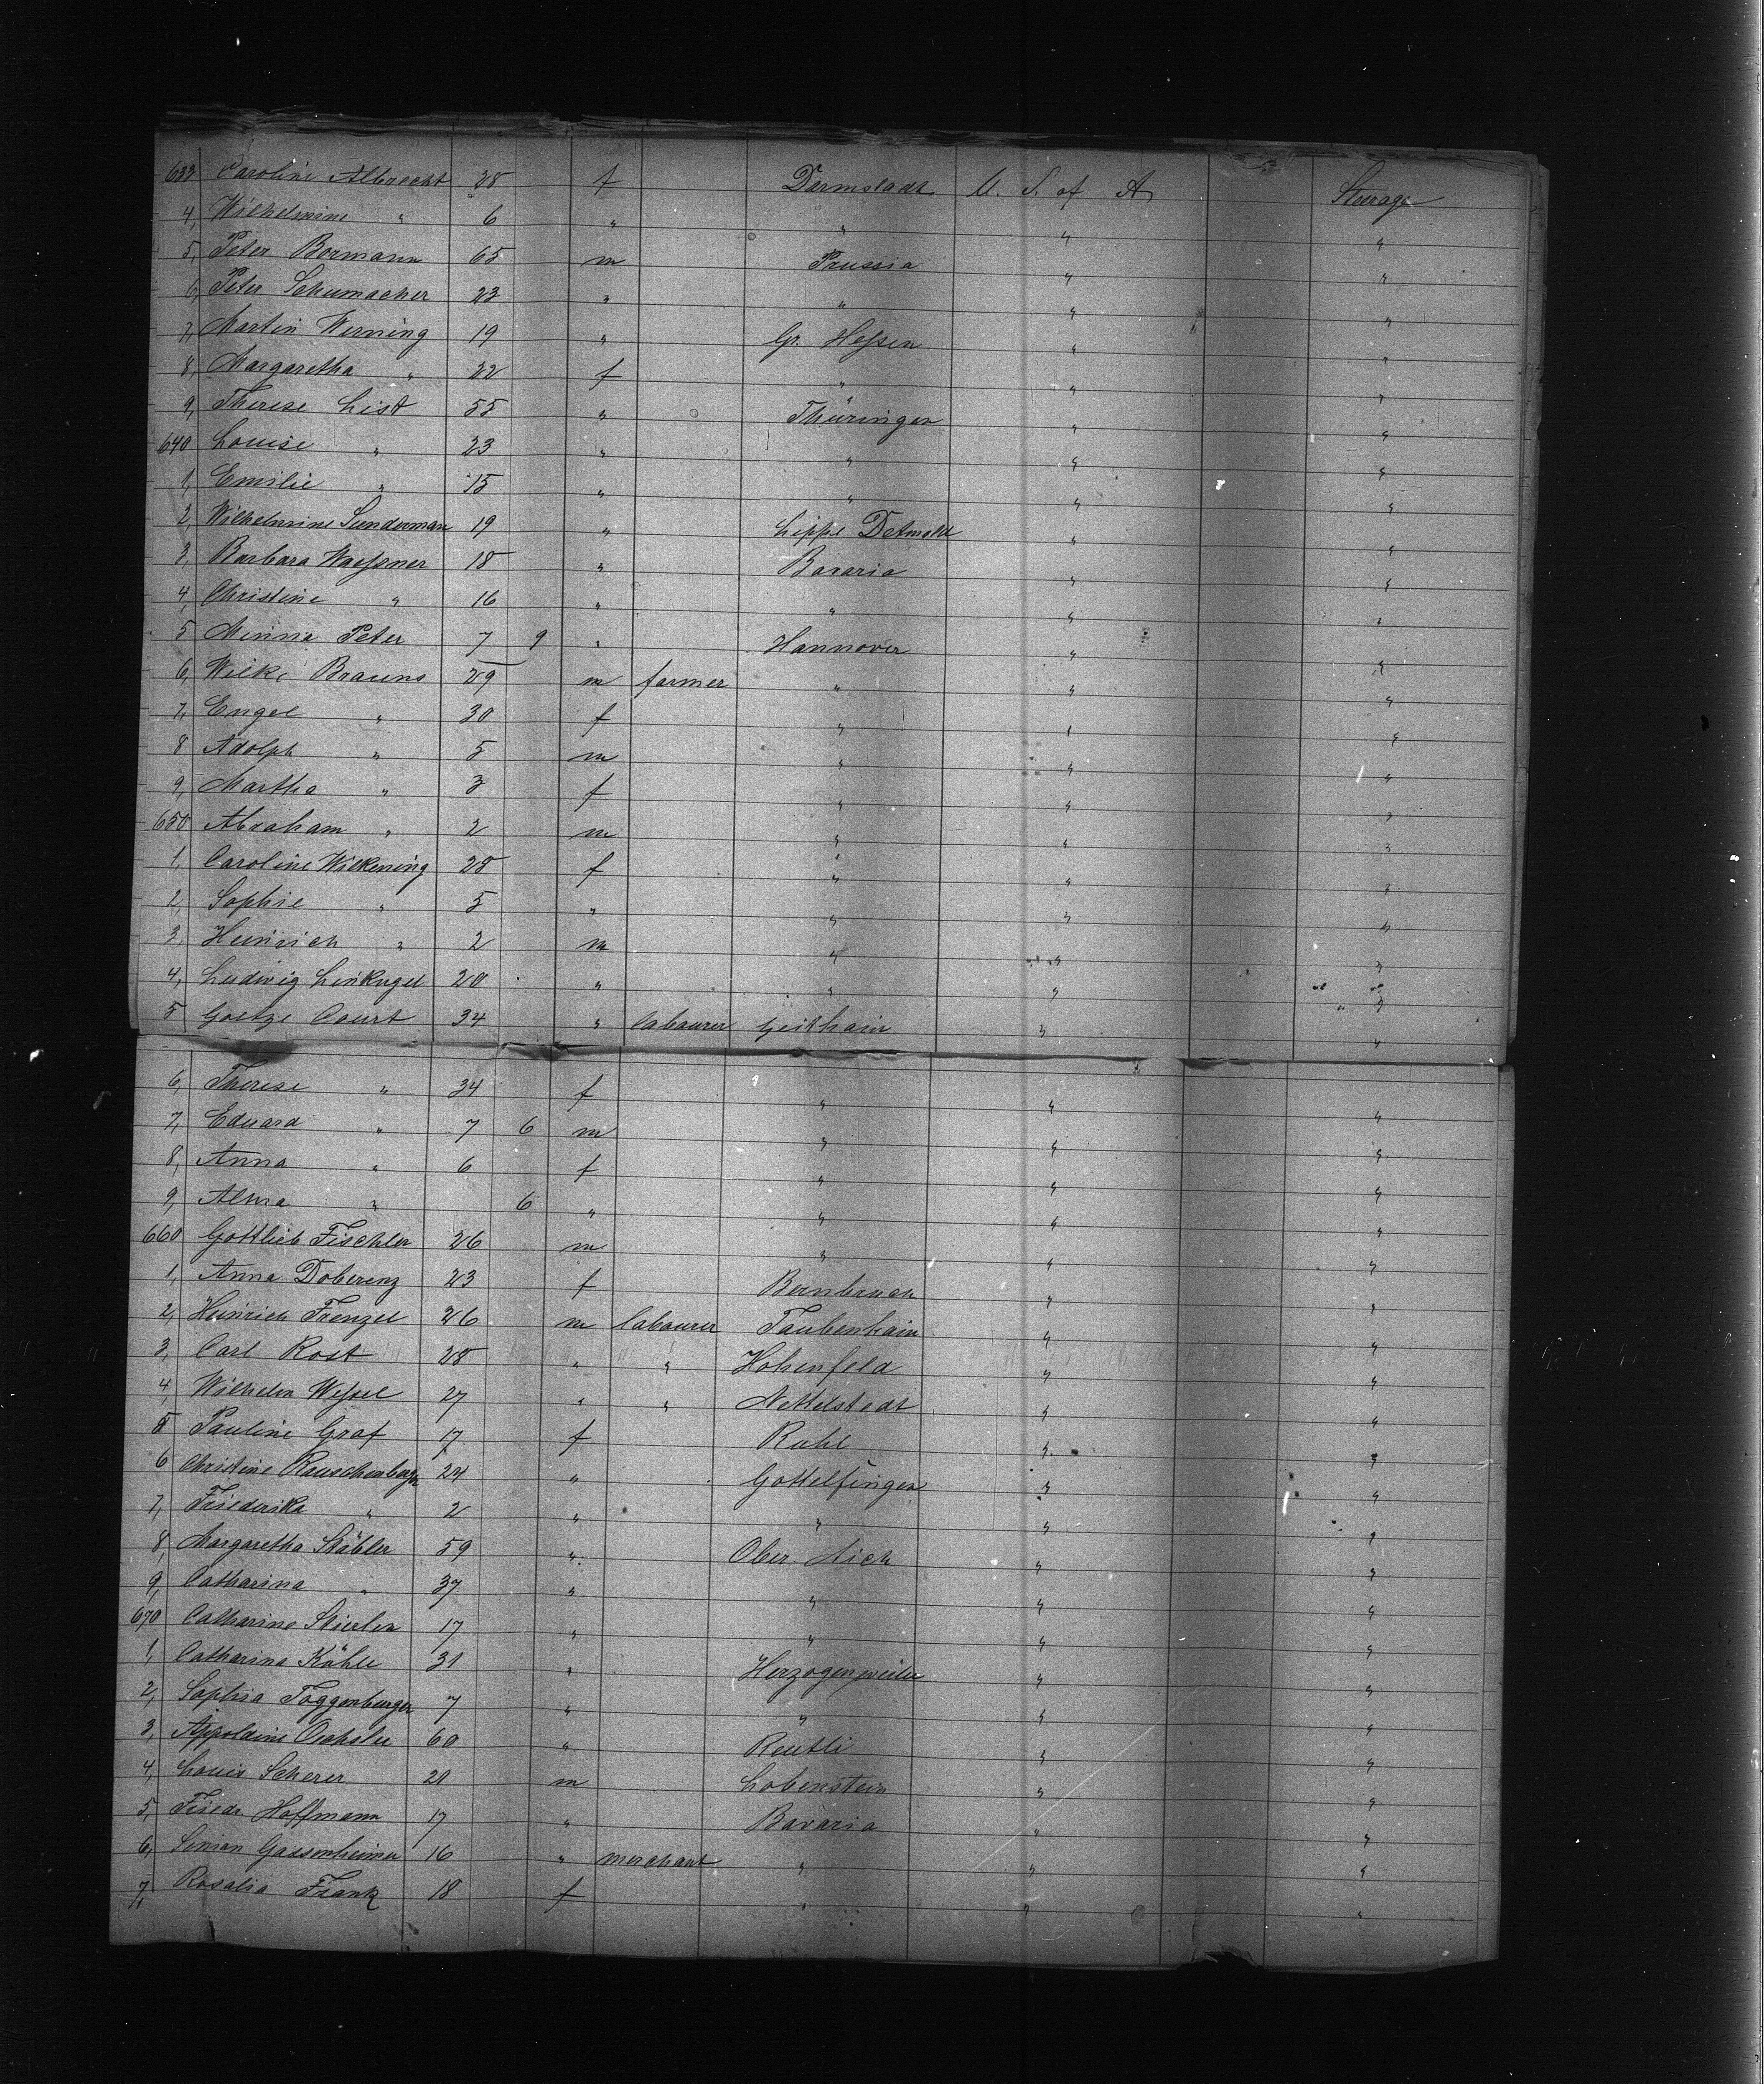 633 Caroline Albrecht 28 f Darmstadt U. S. of A Steerage
4, Wilhelmine " 6 " " " "
5, Peter Bormann 65 m Prussia " "
6, Peter Schumacher 23 " " " "
7, Martin Werning 19 " Gr. Hessen " "
8, Margaretha " 22 f " " "
9, Therese List 55 " Thüringen " "
640 Louise " 23 " " " "
1, Emilie " 15 " " " "
2, Wilhelmine Sunderman 19 " Lippe Detmold " "
3, Barbara Waessner 18 " Bavaria " "
4, Christine " 16 " " " "
5 Minna Peter 7 9 " Hannover " "
6, Wilke Brauns 29 m farmer " " "
7, Engel " 30 f " " "
8 Adolph " 5 m " " "
9, Martha " 3 f " " "
650 Abraham " 2 m " " "
1, Caroline Wilkening 28 f " " "
2, Sophie " 5 " " " "
3, Heinrich " 2 m " " "
4, Ludwig Linkugel 20 " " " "
5 Goetze Court 34 " labourer Geithain " "
6, Therese " 34 f " " "
7, Eduard " 7 6 m " " "
8, Anna " 6 f " " "
9, Alma " 6 " " " "
660 Gottlieb Fischler 26 m " " "
1, Anna Doberenz 23 f Bernbruch " "
2, Heinrich Frenzel 26 m labourer Taubenhain " "
3, Carl Rost 28 " " Hohenfeld " "
4, Wilhelm Wessel 27 " " Nettelstedt " "
5 Pauline Graf 17 f Ruhl " "
6 Christine Rauschenberger 24 " Gottelfingen " "
7, Friederika " 2 " " " "
8, Margaretha Stäbler 59 " Ober Aich " "
9, Catharina " 37 " " " "
670 Catharine Stierlen 17 " " " "
1, Catharina Kähle 31 " Herzogenweiler " "
2, Sophia Toggenburger 7 " " " "
3, Appoldine Oechsler 60 " Reutli " "
4, Louis Scherer 21 m Lobenstein " "
5, Friedr Hoffmann 17 " Bavaria " "
6, Simon Gassenheimer 16 " merchant " " "
7, Rosalia Frank 18 f " " "